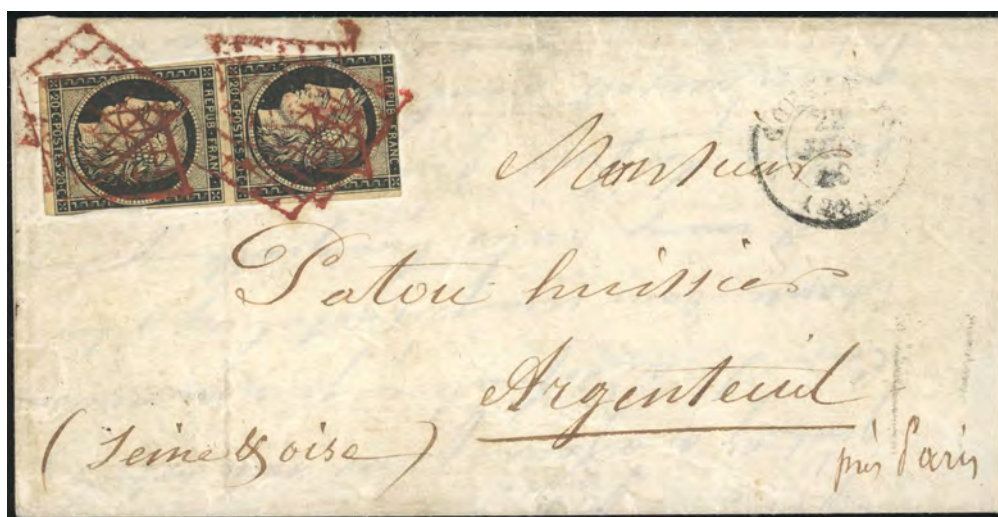 20·C·POSTES·20·C·
REPUB·FRANC·
20·C·POSTES·20·C·
FRANC·
Monsieur
Patou huissier
Argenteuil
(Seine & oise)
près Paris